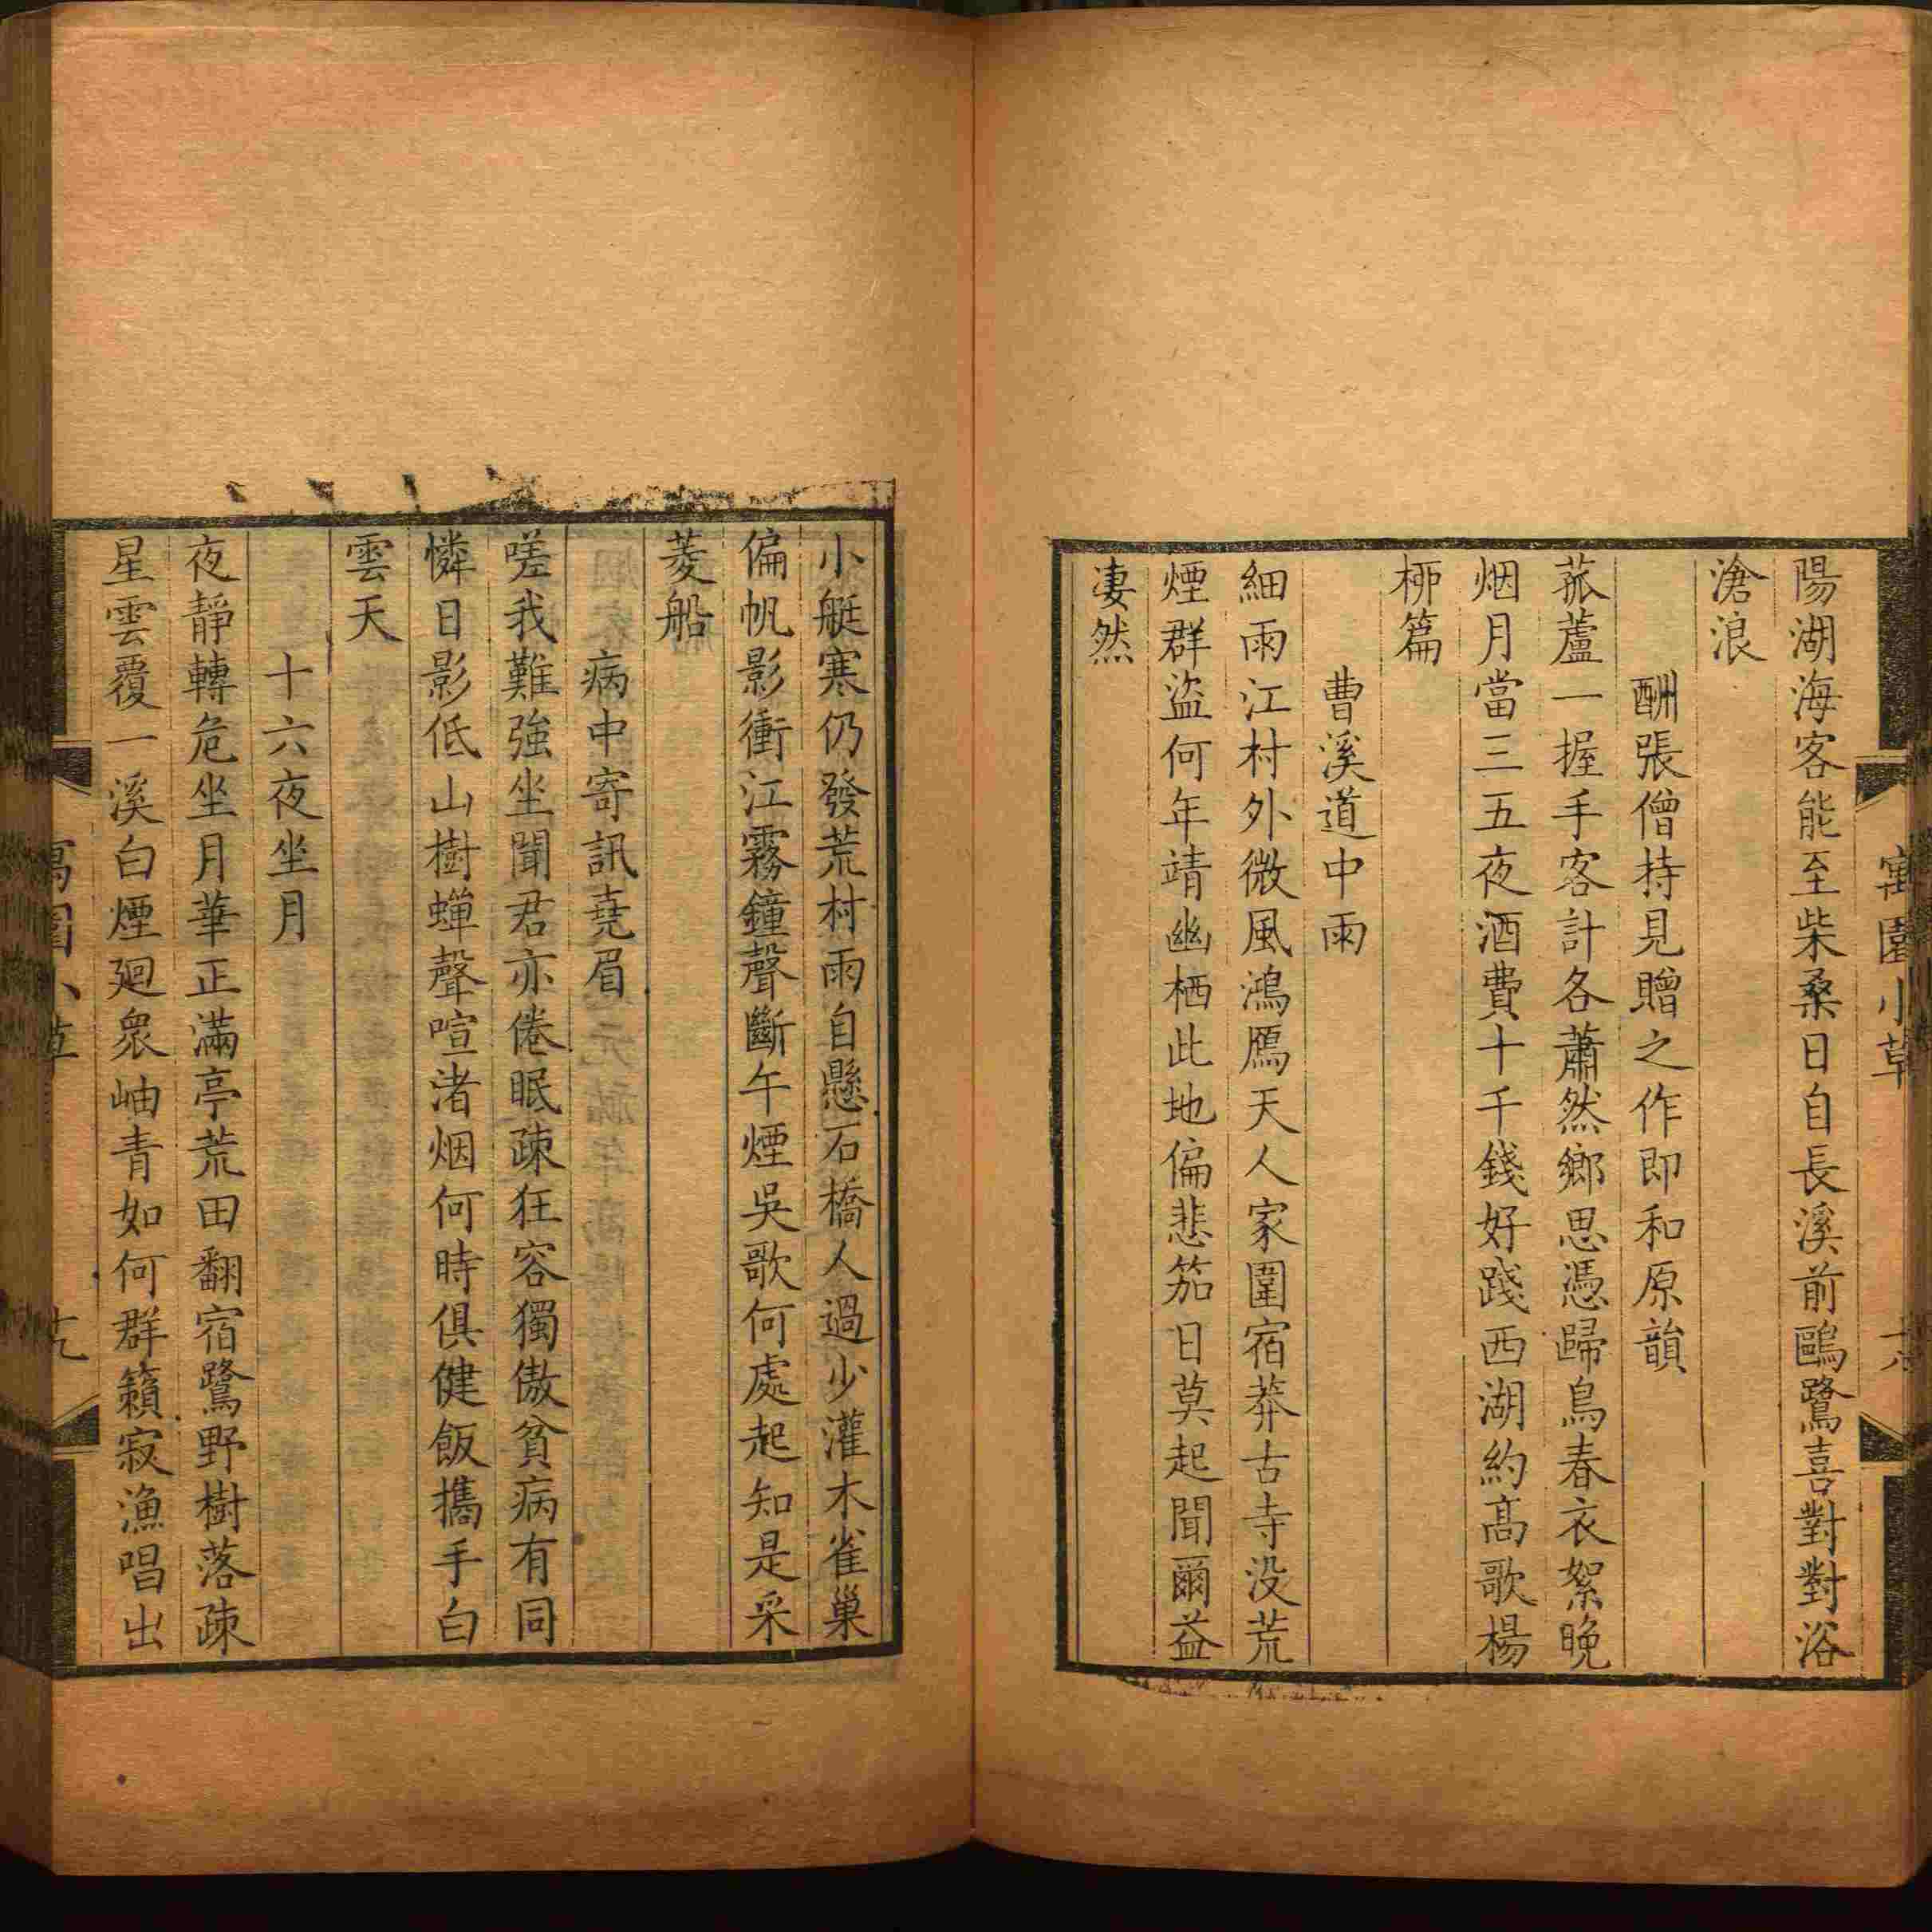 寓園小草
陽湖海客能至柴桑日自長溪前鷗鷺喜對對浴
滄浪
酬張僧持見贈之作即和原韻
菰蘆一握手客計各蕭然鄉思憑歸鳥春衣絮晚
烟月當三五夜酒費十千錢好踐西湖約高歌楊
柳篇
曹溪道中雨
細雨江村外微風鴻鴈天人家圍宿莽古寺没荒
煙群盜何年靖幽栖此地偏悲笳日莫起聞爾益
凄然
小艇寒仍發荒村雨自懸石橋人過少灌木雀巢
偏帆影衝江霧鐘聲斷午煙吳歌何處起知是采
菱船
病中寄訊堯眉
嗟我難強坐聞君亦倦眠疎狂容獨傲貧病有同
憐日影低山樹蟬聲喧渚烟何時俱健飯攜手白
雲天
十六夜坐月
夜靜轉危坐月華正滿亭荒田翻宿鷺野樹落疎
星雲覆一溪白煙迴衆岫青如何群籟寂漁唱出
寓園小草